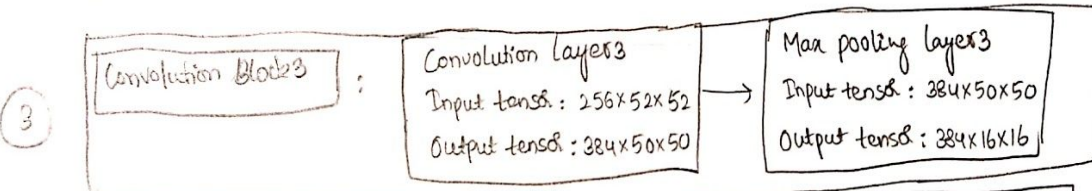 3
Convolution Block3 :
Convolution layer3
Input tensor : 256×52×52
Output tensor : 384×50×50
Max pooling layer3
Input tensor : 384×50×50
Output tensor : 384×16×16